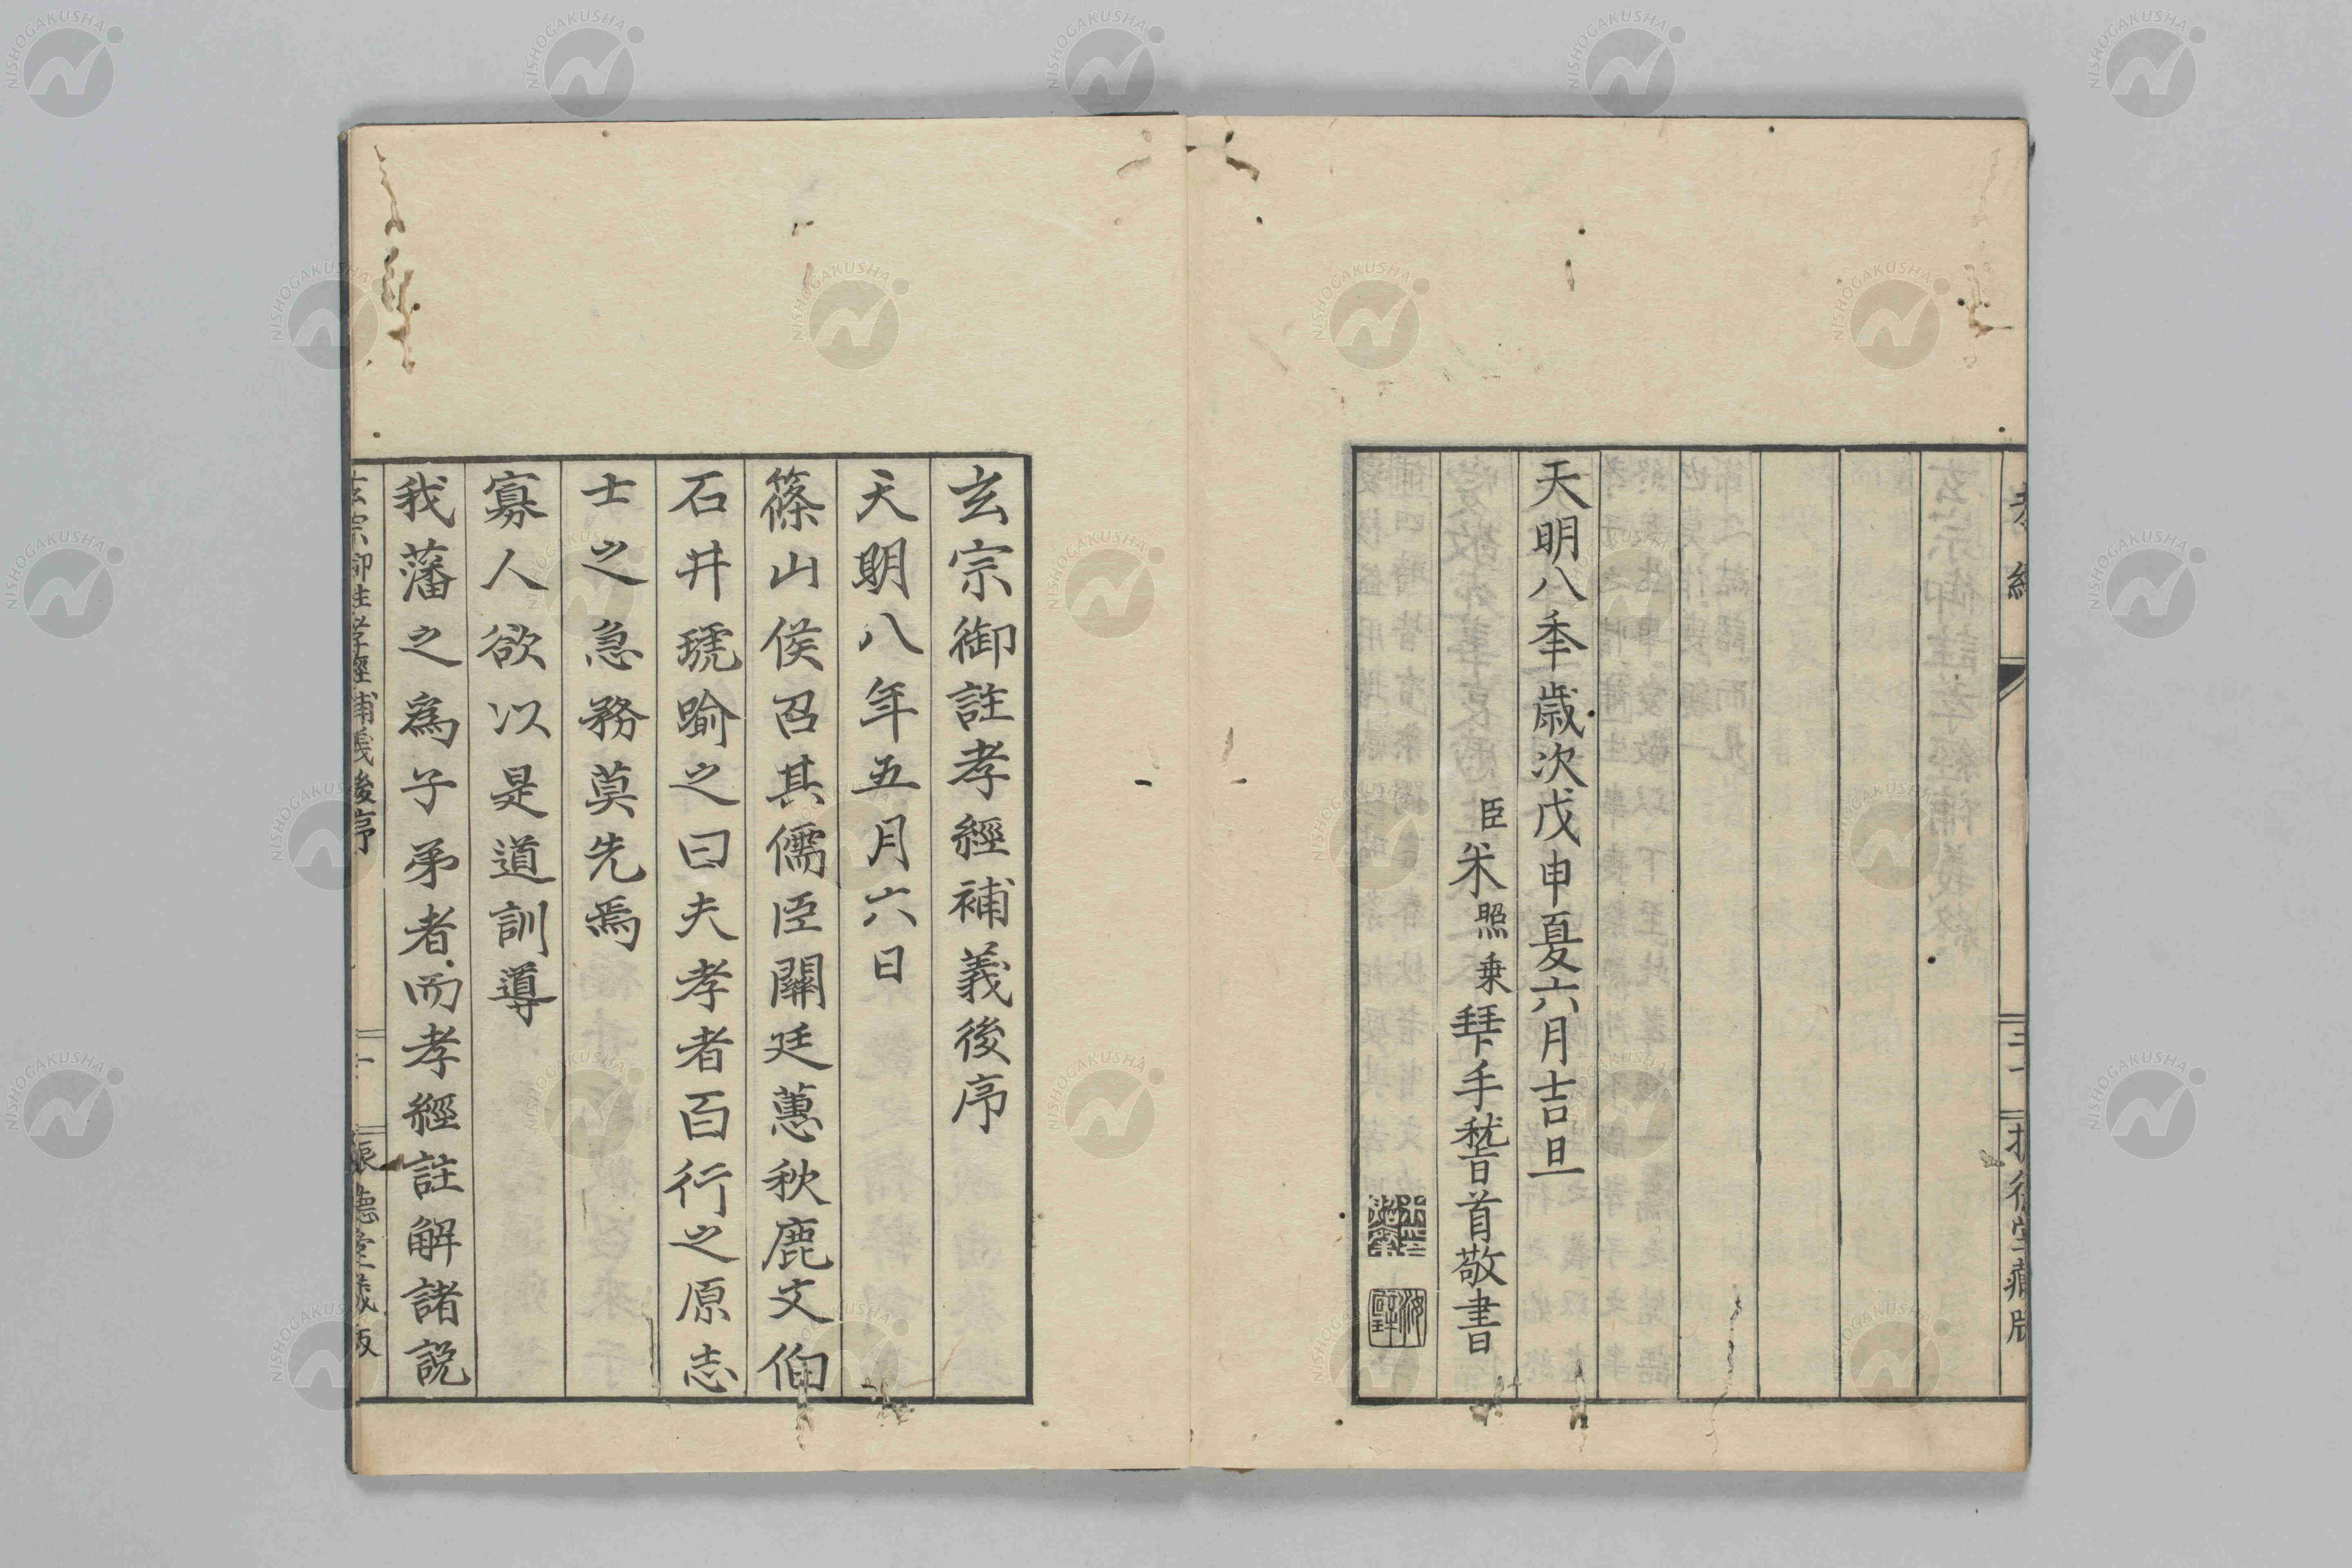 天明八秊歳次戊申夏六月吉旦
臣米照乗拜手稽首敬書
三十
玄宗御註孝經補義後序
天明八年五月六日
篠山侯召其儒臣關廷蕙秋鹿文伯
石井琥喻之曰夫孝者百行之原志
士之急務莫先焉
寡人欲以是道訓導
我藩之爲子弟者而孝經註解諸説
玄宗御註孝經補義後序
振德堂藏版
NISHOGAKUSHA